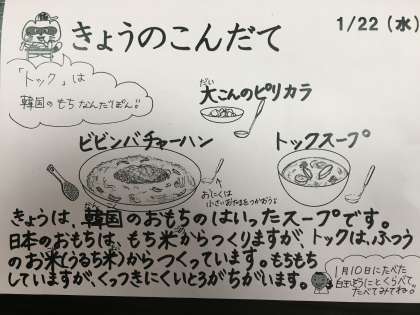 きょうのこんだて
1/22(水)
「トック」は
韓国のもちなんだぽん!!
大こんのピリカラ
だい
ビビンバチャーハン
トックスープ
おにくは
小さいおたまをつかおう♪
きょうは、韓国のおもちのはいったスープです。
日本のおもちは、もち米からつくりますが、トックは、ふつう
のお米(うるち米)からつくっています。もちもち
していますが、くっつきにくいところがちがいます。
1月10日にたべた
とくらべて
たべてみてね。